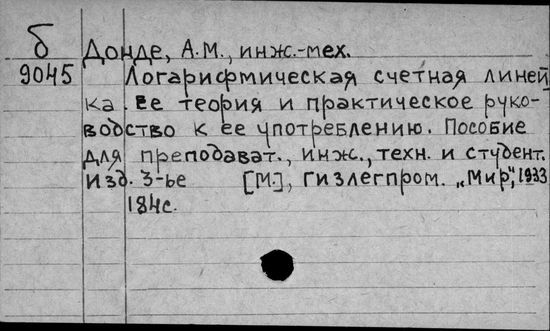 б Донде, А.М., инж.-мех.
9045 Логарифмическая счетная линей
ка. Ее теория и практическое руко-
водство к ее употреблению. Пособие
для преподават., инж., техн. и студент.
изд. 3-ье [М.], гизлегпром. „Мир", 1933
184с.